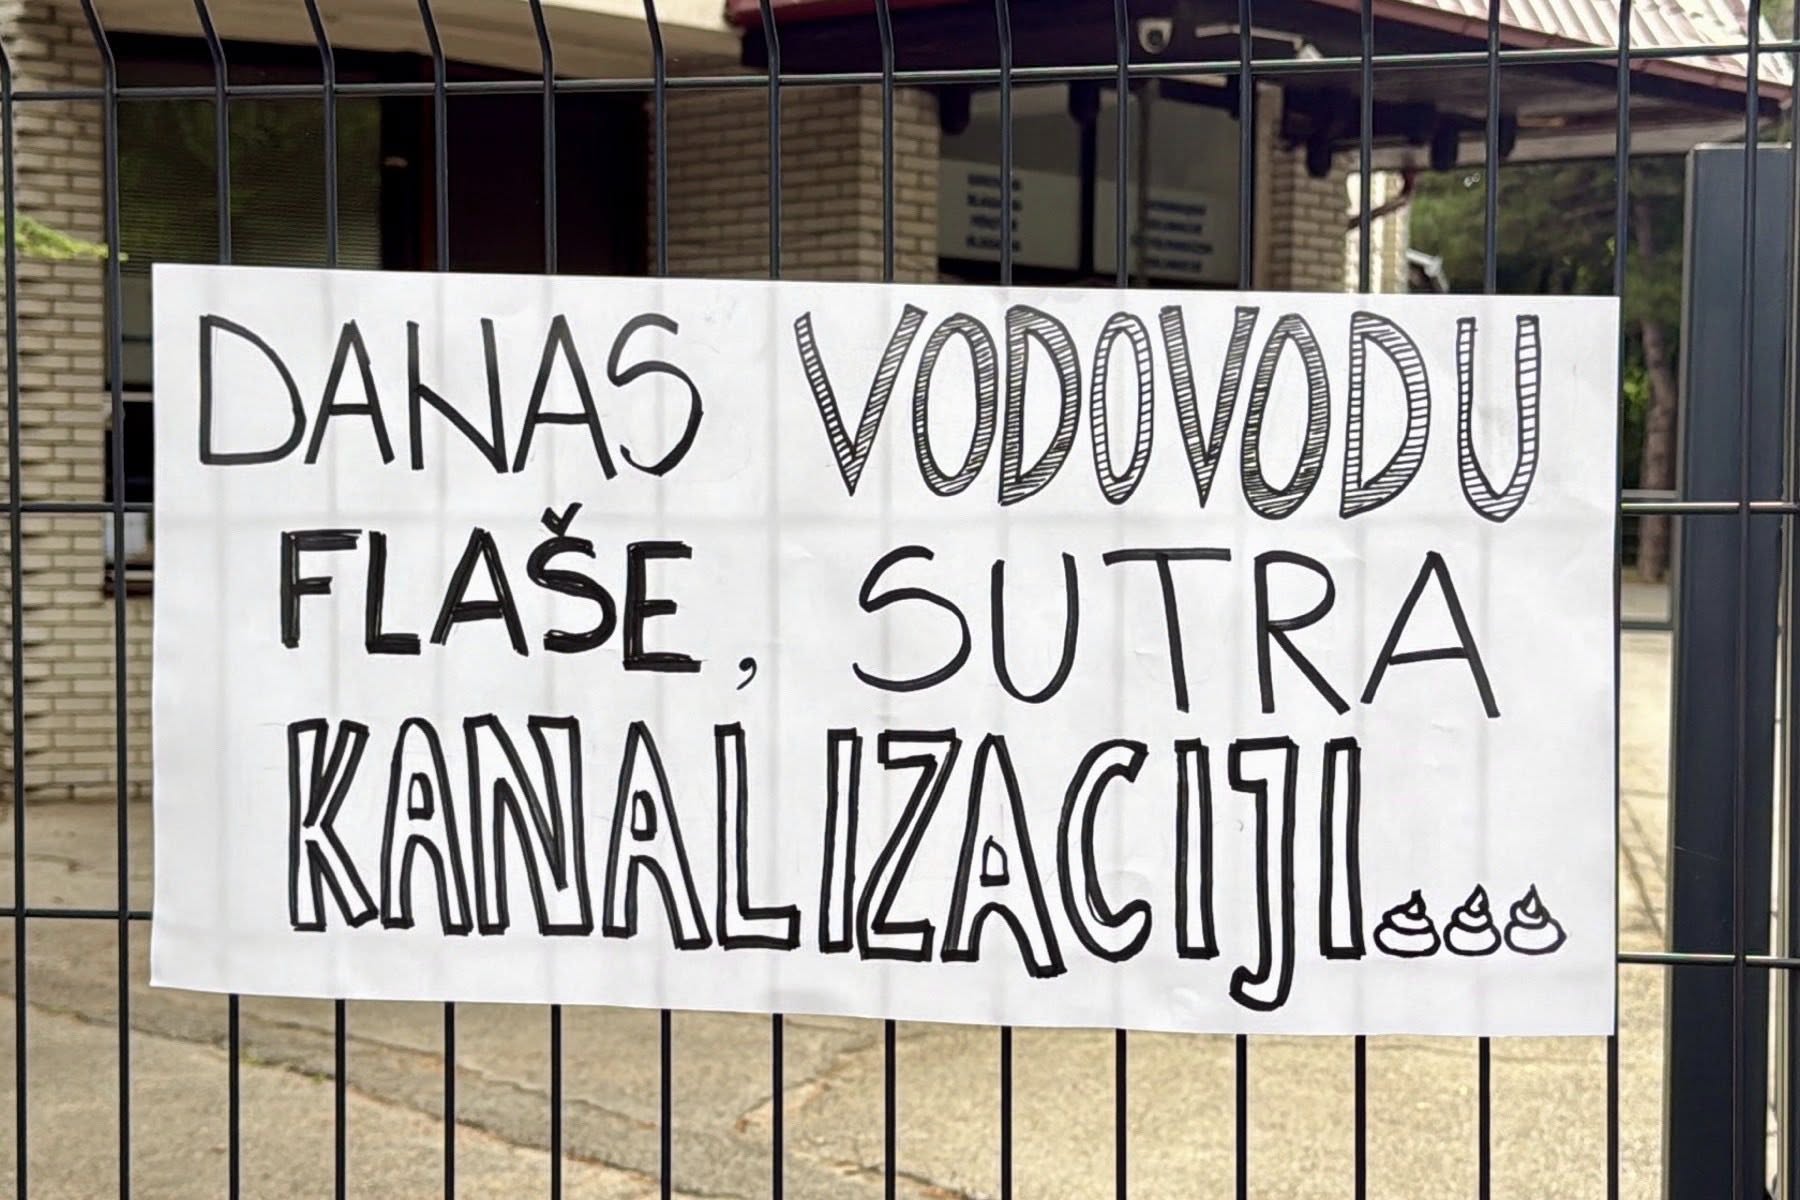 DANAS VODOVODU
FLAŠE, SUTRA
KANALIZACIJI...